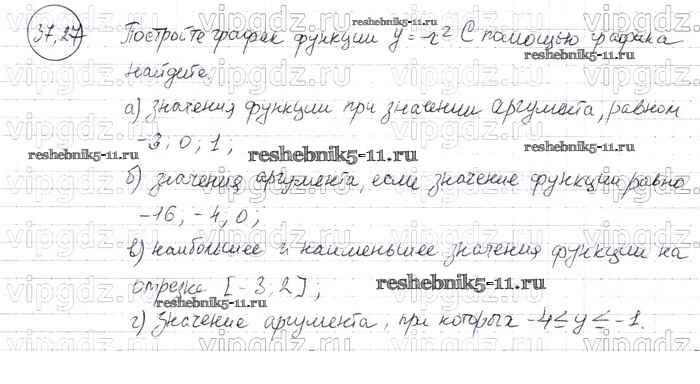 37.27 Постройте график функции y = -x² С помощью графика
найдите:
а) значения функции при значении аргумента, равном
-3; 0; 1;
б) значения аргумента, если значение функции равно
-16; -4; 0;
в) наибольшее и наименьшее значения функции на
отрезке [-3; 2];
г) значение аргумента, при которых -4 ≤ y ≤ -1.
reshebnik5-11.ru
reshebnik5-11.ru
reshebnik5-11.ru
reshebnik5-11.ru
reshebnik5-11.ru
reshebnik5-11.ru
reshebnik5-11.ru